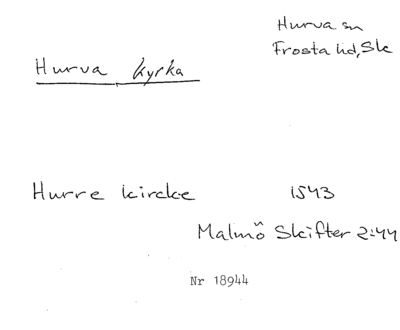 Hurva sn
Frosta hd, Sk
Hurva kyrka
Hurre kircke 1543
Malmö Skifter 2:44
Nr 18944